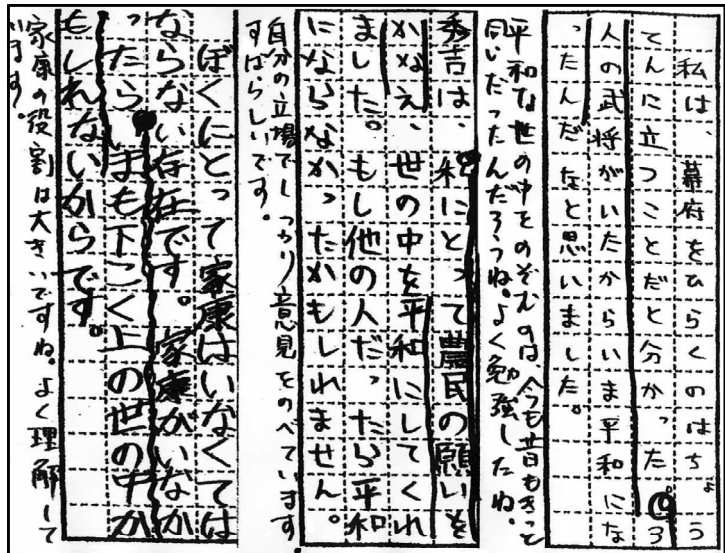 私は、幕府をひらくのはちょう
てんに立つことだと分かった。3
人の武将がいたからいま平和にな
ったんだなと思いました。
平和な世の中をのぞむのは、今も昔もきっと
同いだったんだろうね。よく勉強したね。
秀吉は、私にとって農民の願いを
かなえ、世の中を平和にしてくれ
ました。もし他の人だったら平和
にならなかったかもしれません。
自分の立場でしっかり意見をのべています
すばらしいです。
ぼくにとって家康はいなくては
ならない存在です。家康がいなか
ったらいまも下こく上の世の中か
もしれないからです。
家康の役割は大きいですね。よく理解して
います。